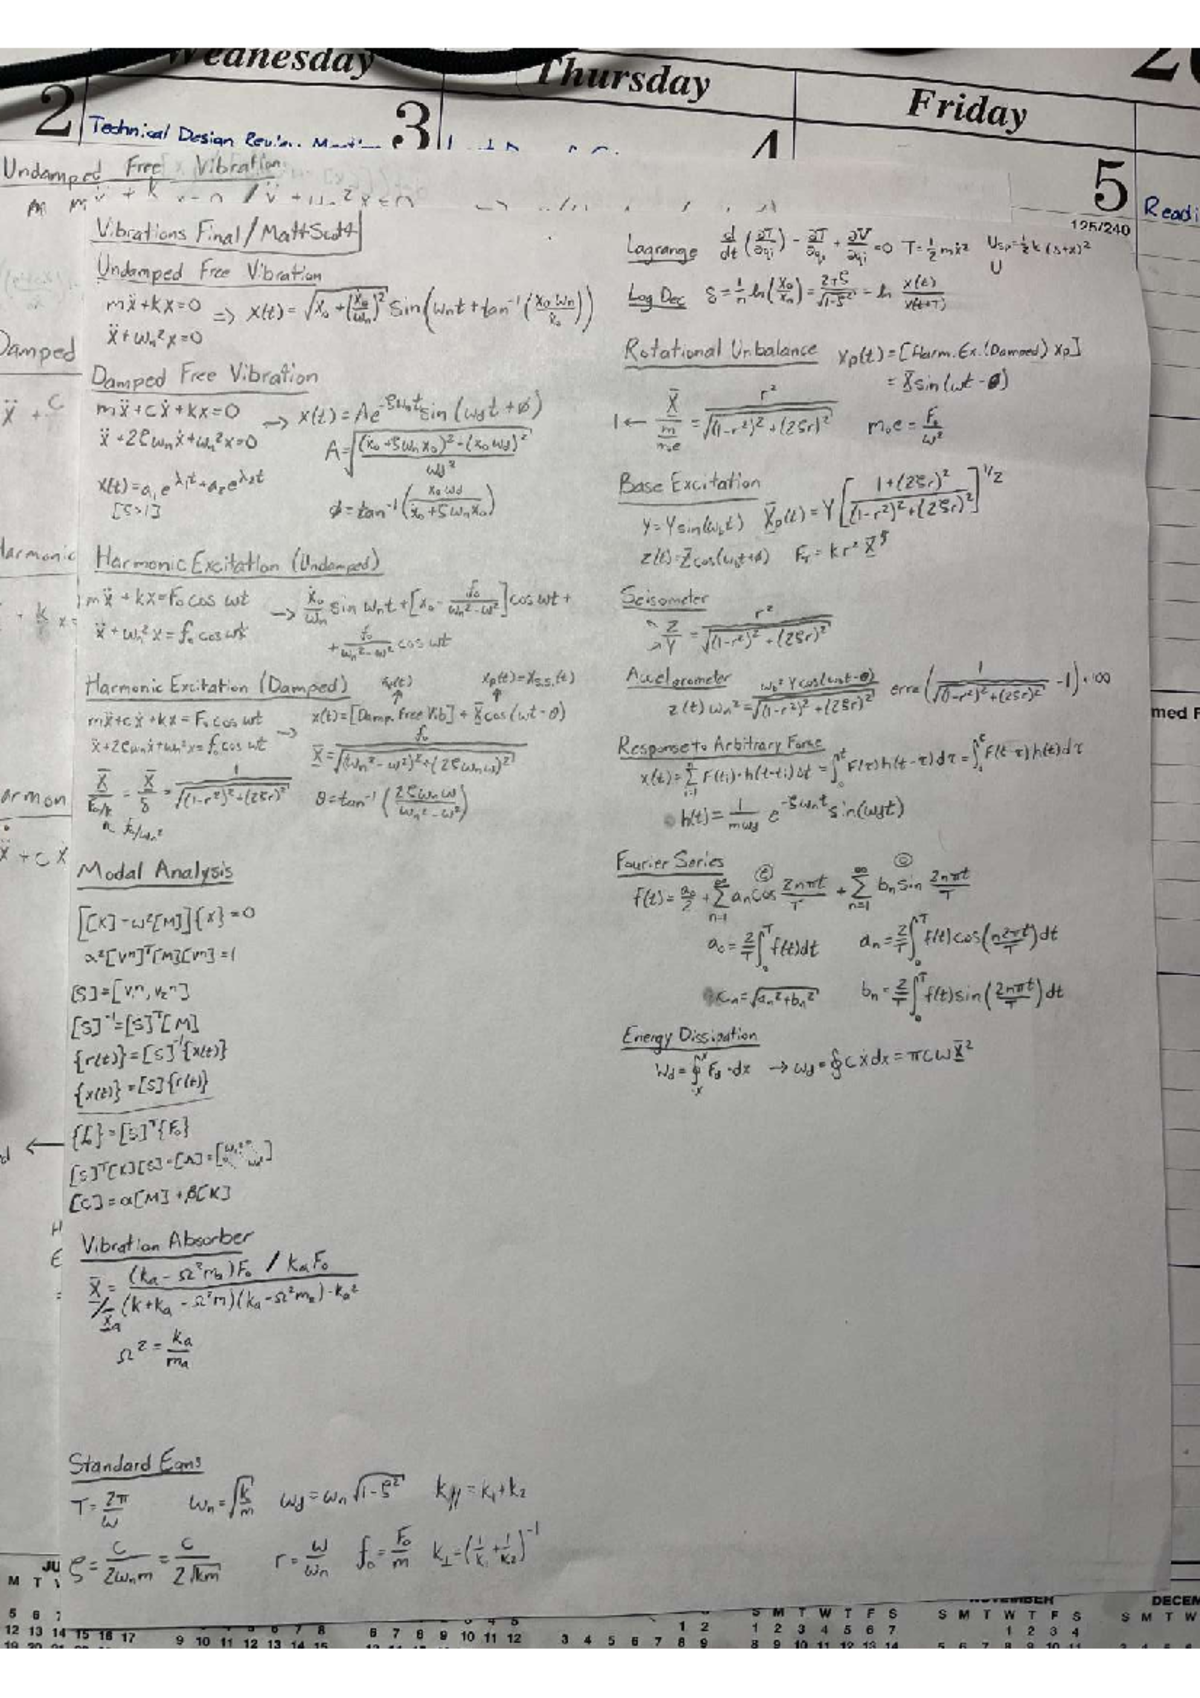 Wednesday Thursday Friday
2 3 4 5
Technical Design Review
125/240
Readi
Undamped Free Vibration
Vibrations Final/Matt Scott
Undamped Free Vibration
mẍ+kx=0 => x(t)=√(x₀+(ẋ₀/ωn)²) sin(ωnt+tan⁻¹(x₀ωn/ẋ₀))
ẍ+ωn²x=0
Damped Free Vibration
mẍ+cẋ+kx=0 → x(t)=Ae^(-ζωnt) sin(ωdt+φ)
ẍ+2ζωnẋ+ωn²x=0 A=√(((ẋ₀+ζωnx₀)²+(x₀ωd)²)/ωd²)
x(t)=a₁e^(λ₁t)+a₂e^(λ₂t)
[ζ>1] φ=tan⁻¹(x₀ωd/(ẋ₀+ζωnx₀))
Harmonic Excitation (Undamped)
mẍ+kx=F₀cos ωt → ẋ₀/ωn sin ωnt+[x₀-f₀/(ωn²-ω²)]cos ωt+
ẍ+ωn²x=f₀cos ωt +f₀/(ωn²-ω²) cos ωt
Harmonic Excitation (Damped) xp(t)=xs.s.(t)
mẍ+cẋ+kx=F₀cos ωt → x(t)=[Damp. Free Vib]+X̄cos(ωt-θ)
ẍ+2ζωnẋ+ωn²x=f₀cos ωt X̄=f₀/√((ωn²-ω²)²+(2ζωnω)²)
X̄/(F₀/k)=X̄/δ=1/√((1-r²)²+(2ζr)²) θ=tan⁻¹(2ζωnω/(ωn²-ω²))
f₀/ωn²
Modal Analysis
[[K]-ω²[M]]{x}=0
α²[Vⁿ]ᵀ[M][Vⁿ]=1
[S]=[V₁ⁿ,V₂ⁿ]
[S]⁻¹=[S]ᵀ[M]
{r(t)}=[S]⁻¹{x(t)}
{x(t)}=[S]{r(t)}
{f₀}=[S]ᵀ{F₀}
[S]ᵀ[K][S]=[Λ]=
[C]=α[M]+β[K]
Vibration Absorber
X̄/Xa=(ka-Ω²ma)F₀ / kaF₀
(k+ka-Ω²m)(ka-Ω²ma)-ka²
Ω²=ka/ma
Standard Eqns
T=2π/ω ωn=√(k/m) ωd=ωn√(1-ζ²) k∥=k₁+k₂
ζ=c/(2ωnm)=c/(2√(km)) r=ω/ωn f₀=F₀/m k⊥=(1/k₁+1/k₂)⁻¹
Lagrange d/dt(∂T/∂q̇i)-∂T/∂qi+∂V/∂qi=0 T=½mẋ² Usp=½k(δ+x)²
U
Log Dec δ=1/n ln(x₀/xn)=2πζ/√(1-ζ²)=ln x(t)/x(t+T)
Rotational Unbalance xp(t)=[Harm. Ex.(Damped) xp]
=X̄sin(ωt-θ)
1← X̄/(m/m₀e)=r²/√((1-r²)²+(2ζr)²) m₀e=F₀/ω²
Base Excitation
y=Ysin(ωbt) X̄p(t)=Y[(1+(2ζr)²)/((1-r²)²+(2ζr)²)]^(1/2)
z(t)=Zcos(ωbt+θ) FT=kr²X̄
Seisometer
Z/Y=r²/√((1-r²)²+(2ζr)²)
Accelerometer
z(t)ωn²=ωb²Ycos(ωbt-θ)/√((1-r²)²+(2ζr)²) error(1/√((1-r²)²+(2ζr)²)-1)·100
Response to Arbitrary Force
x(t)=Σ F(ti)·h(t-ti)Δt=∫F(τ)h(t-τ)dτ=∫F(t-τ)h(t)dτ
h(t)=1/(mωd) e^(-ζωnt) sin(ωdt)
Fourier Series
f(t)=a₀/2+Σ an cos 2nπt/T+Σ bn sin 2nπt/T
a₀=2/T∫f(t)dt an=2/T∫f(t)cos(n2πt/T)dt
cn=√(an²+bn²) bn=2/T∫f(t)sin(2nπt/T)dt
Energy Dissipation
Wd=∮Fd·dx → ωd=∮cẋdx=πcωX̄²